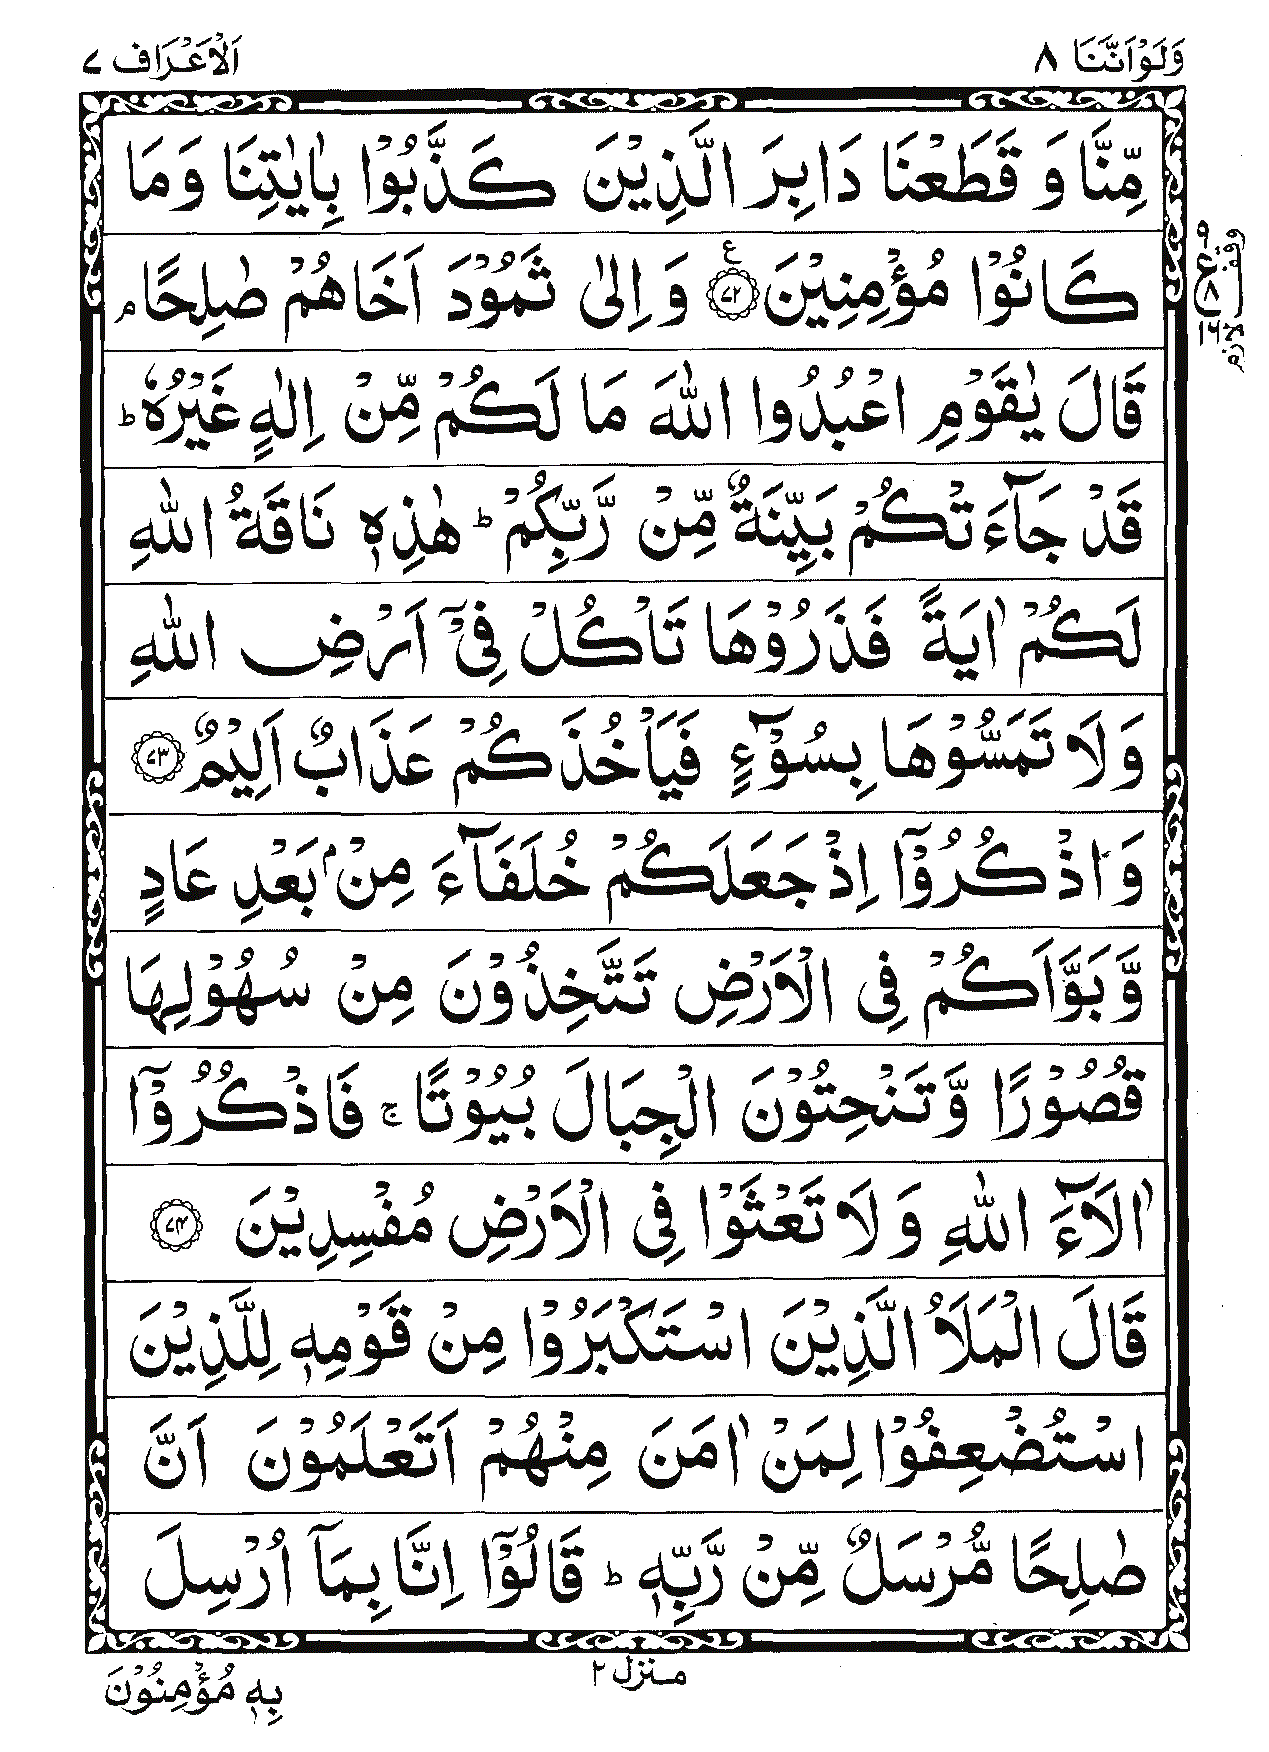 وَلَوْاَنَّنَا ٨
اَلْاَعْرَاف ٧
مِّنَّا وَ قَطَعْنَا دَابِرَ الَّذِيْنَ كَذَّبُوْا بِاٰيٰتِنَا وَمَا
كَانُوْا مُؤْمِنِيْنَ ﴿٧٢﴾ ع وَ اِلٰى ثَمُوْدَ اَخَاهُمْ صٰلِحًا ۘ
قَالَ يٰقَوْمِ اعْبُدُوا اللّٰهَ مَا لَكُمْ مِّنْ اِلٰهٍ غَيْرُهٗ ؕ
قَدْ جَآءَتْكُمْ بَيِّنَةٌ مِّنْ رَّبِّكُمْ ؕ هٰذِهٖ نَاقَةُ اللّٰهِ
لَكُمْ اٰيَةً فَذَرُوْهَا تَاْكُلْ فِيْۤ اَرْضِ اللّٰهِ
وَلَا تَمَسُّوْهَا بِسُوْٓءٍ فَيَاْخُذَكُمْ عَذَابٌ اَلِيْمٌ ﴿٧٣﴾
وَاذْكُرُوْۤا اِذْ جَعَلَكُمْ خُلَفَآءَ مِنْۢ بَعْدِ عَادٍ
وَّبَوَّاَكُمْ فِي الْاَرْضِ تَتَّخِذُوْنَ مِنْ سُهُوْلِهَا
قُصُوْرًا وَّتَنْحِتُوْنَ الْجِبَالَ بُيُوْتًا ۚ فَاذْكُرُوْۤا
اٰلَآءَ اللّٰهِ وَلَا تَعْثَوْا فِي الْاَرْضِ مُفْسِدِيْنَ ﴿٧٤﴾
قَالَ الْمَلَاُ الَّذِيْنَ اسْتَكْبَرُوْا مِنْ قَوْمِهٖ لِلَّذِيْنَ
اسْتُضْعِفُوْا لِمَنْ اٰمَنَ مِنْهُمْ اَتَعْلَمُوْنَ اَنَّ
صٰلِحًا مُّرْسَلٌ مِّنْ رَّبِّهٖ ؕ قَالُوْۤا اِنَّا بِمَاۤ اُرْسِلَ
ع ٨ ١٦
وقف لازم
منزل ٢
بِهٖ مُؤْمِنُوْنَ